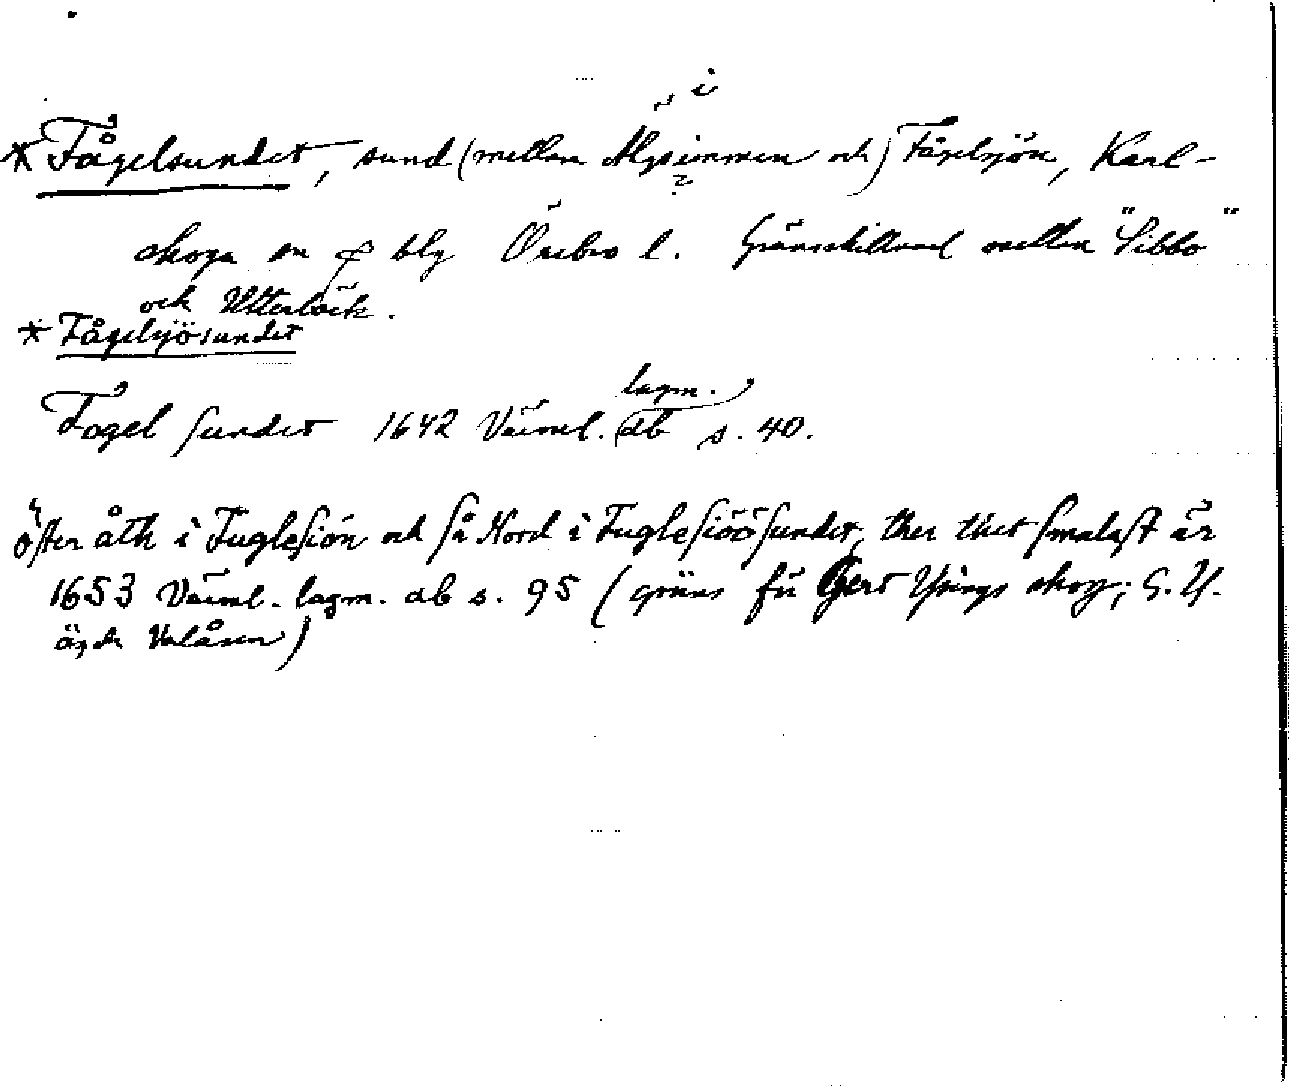 i
* Fågelsundet, sund (mellan Älgsimmen och) Fågelsjön, Karl-
?
skoga sn o blg Örebro l. Gränsskillnad mellan "Sibbo"
och Utterbäck.
* Fågelsjösundet
lagm.
Fogel sundet 1642 Värml. db s. 40.
öster åth i Fuglesiön och så Nord i Fuglesiöösundet, ther thet smalast är
1653 Värml. lagm. db s. 95 (gräns för Gert Yfings skog; G. Y.
ägde Valåsen)